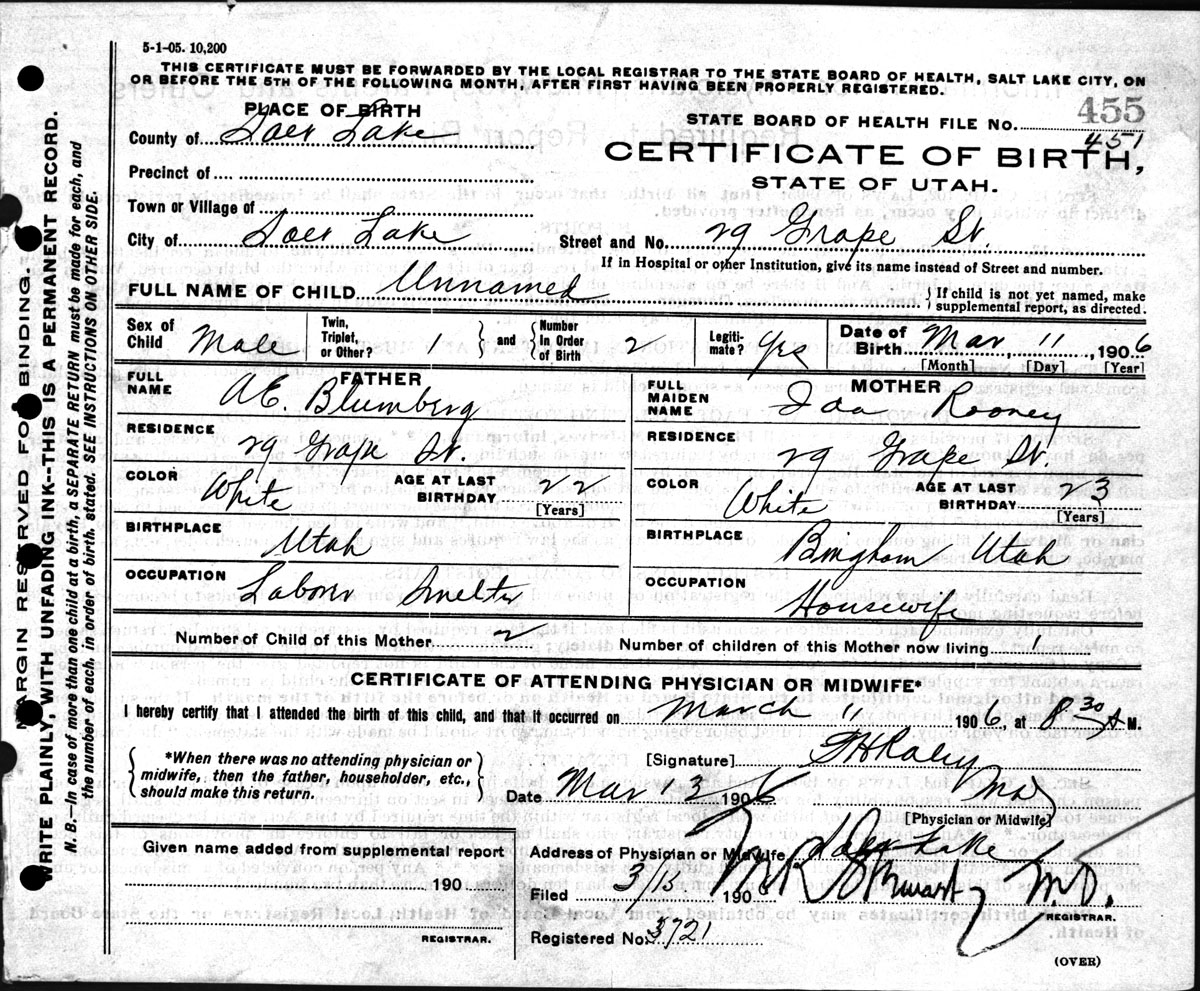 5-1-05. 10,200
THIS CERTIFICATE MUST BE FORWARDED BY THE LOCAL REGISTRAR TO THE STATE BOARD OF HEALTH, SALT LAKE CITY, ON
OR BEFORE THE 5TH OF THE FOLLOWING MONTH, AFTER FIRST HAVING BEEN PROPERLY REGISTERED.
PLACE OF BIRTH
STATE BOARD OF HEALTH FILE No. 455
451
County of Salt Lake
CERTIFICATE OF BIRTH,
STATE OF UTAH.
Precinct of
Town or Village of
City of Salt Lake Street and No. 29 Grape St.
If in Hospital or other Institution, give its name instead of Street and number.
FULL NAME OF CHILD Unnamed {If child is not yet named, make supplemental report, as directed.
Sex of Child Male Twin, Triplet, or Other? 1 } and { Number In Order of Birth 2 Legiti-mate? Yes Date of Birth Mar, 11, 1906
[Month] [Day] [Year]
FATHER
FULL NAME A E. Blumberg
RESIDENCE 29 Grape St.
COLOR White AGE AT LAST BIRTHDAY 22
[Years]
BIRTHPLACE Utah
OCCUPATION Laborer Smelter
MOTHER
FULL MAIDEN NAME Ida Rooney
RESIDENCE 29 Grape St.
COLOR White AGE AT LAST BIRTHDAY 23
[Years]
BIRTHPLACE Bingham Utah
OCCUPATION Housewife
Number of Child of this Mother 2 Number of children of this Mother now living
CERTIFICATE OF ATTENDING PHYSICIAN OR MIDWIFE*
I hereby certify that I attended the birth of this child, and that it occurred on March 11 1906, at 8 30 A M.
{*When there was no attending physician or
midwife, then the father, householder, etc.,
should make this return.}
[Signature] F H Raley
MD
Date Mar 13 1906
[Physician or Midwife]
Given name added from supplemental report
190
REGISTRAR.
Address of Physician or Midwife Salt Lake
Filed 3/15 1906 M.D.
REGISTRAR.
Registered No. 3721
(OVER)
MARGIN RESERVED FOR BINDING.
WRITE PLAINLY, WITH UNFADING INK--THIS IS A PERMANENT RECORD.
N. B.--In case of more than one child at a birth, a SEPARATE RETURN must be made for each, and
the number of each, in order of birth, stated. SEE INSTRUCTIONS ON OTHER SIDE.